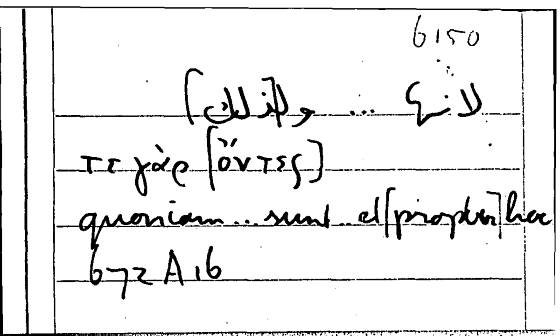 6150
لانها ... و[لذلك]
τε γὰρ [ὄντες]
quoniam... sunt... et [propter] hoc
672 A 16